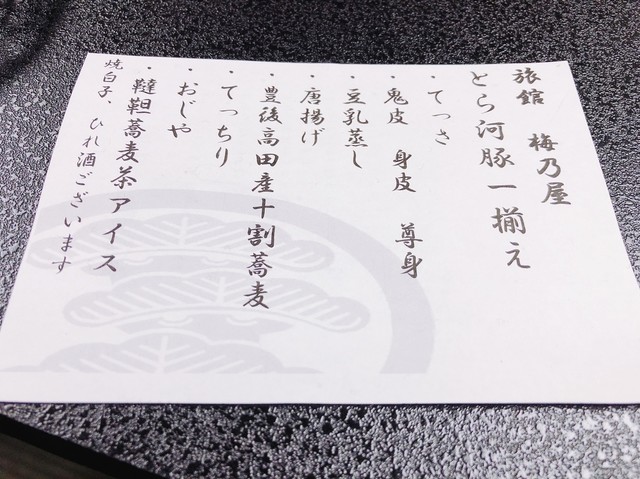 旅館 梅乃屋
とら河豚一揃え
・てっさ
・鬼皮 身皮 尊身
・豆乳蒸し
・唐揚げ
・豊後高田産十割蕎麦
・てっちり
・おじや
・韃靼蕎麦茶アイス
焼白子、ひれ酒ございます